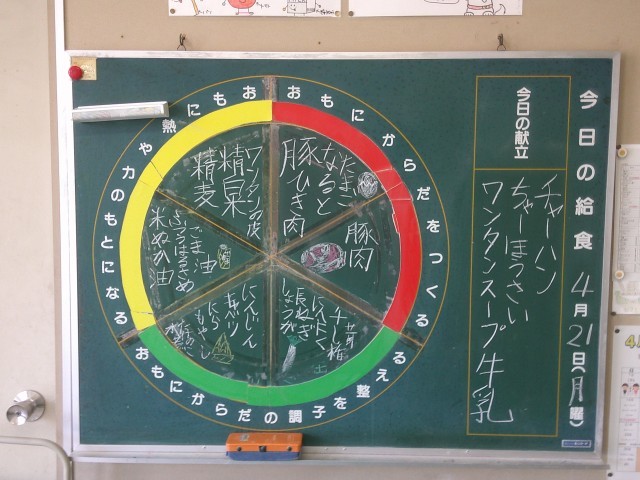 今日の給食 4月21日(月曜)
今日の献立
チャーハン
ちゃーほうさい
ワンタンスープ 牛乳
おもにからだをつくる
おもにからだの調子を整える
おもに熱や力のもとになる
たまご
なると
豚ひき肉
豚肉
ワンタンの皮
精白米
精麦
ごま油
米ぬか油
にんにく
長ねぎ
しょうが
にんじん
キャベツ
にら
もやし